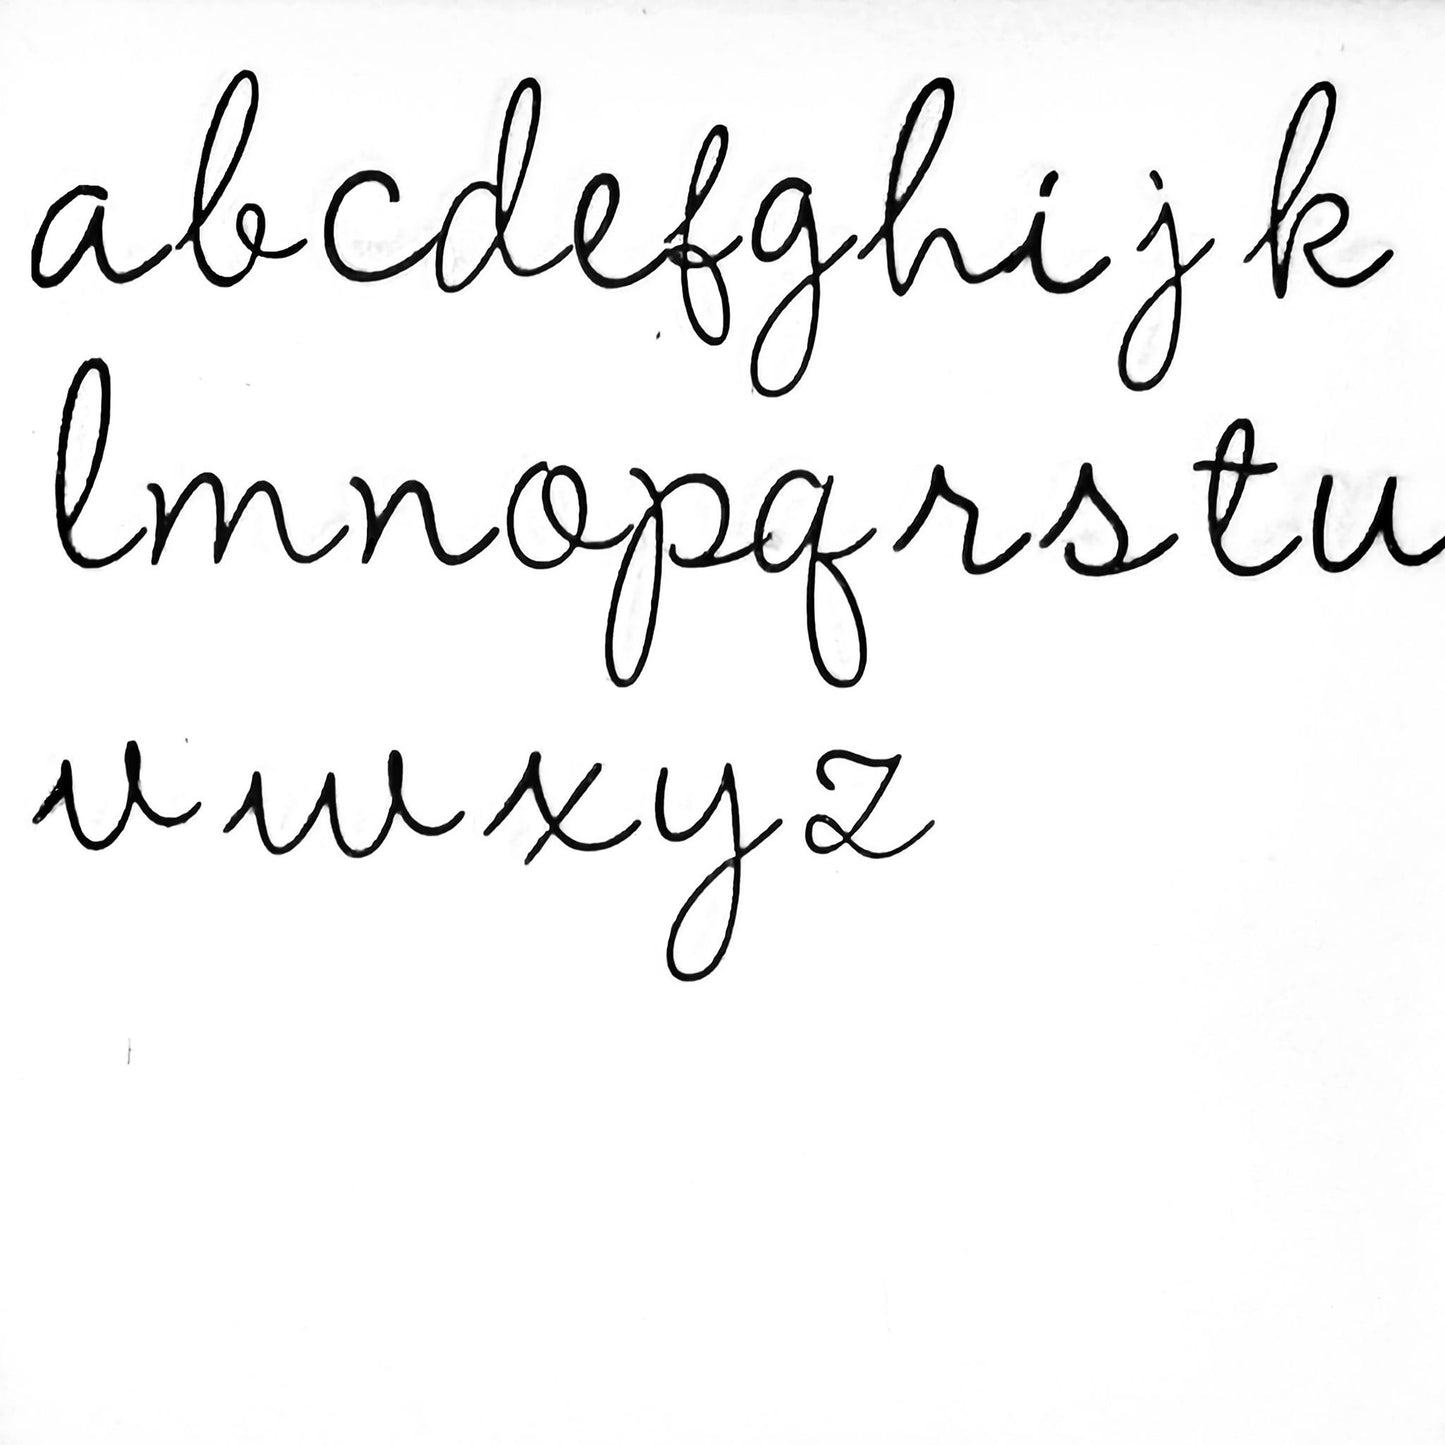 abcdefghijk
lmnopqrstu
vwxyz